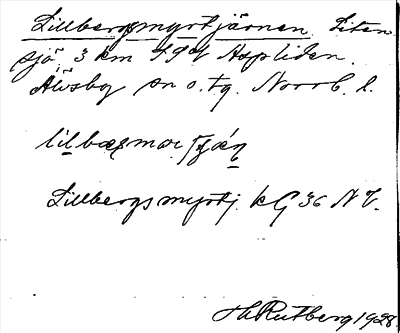 Lillbergsmyrtjärnen. Liten
sjö 3 km S om Aspliden.
Älvsby sn o. tg. Norrb. l.
Lillbergsmyrtj. kG 36 NV.
H Rutberg 1928